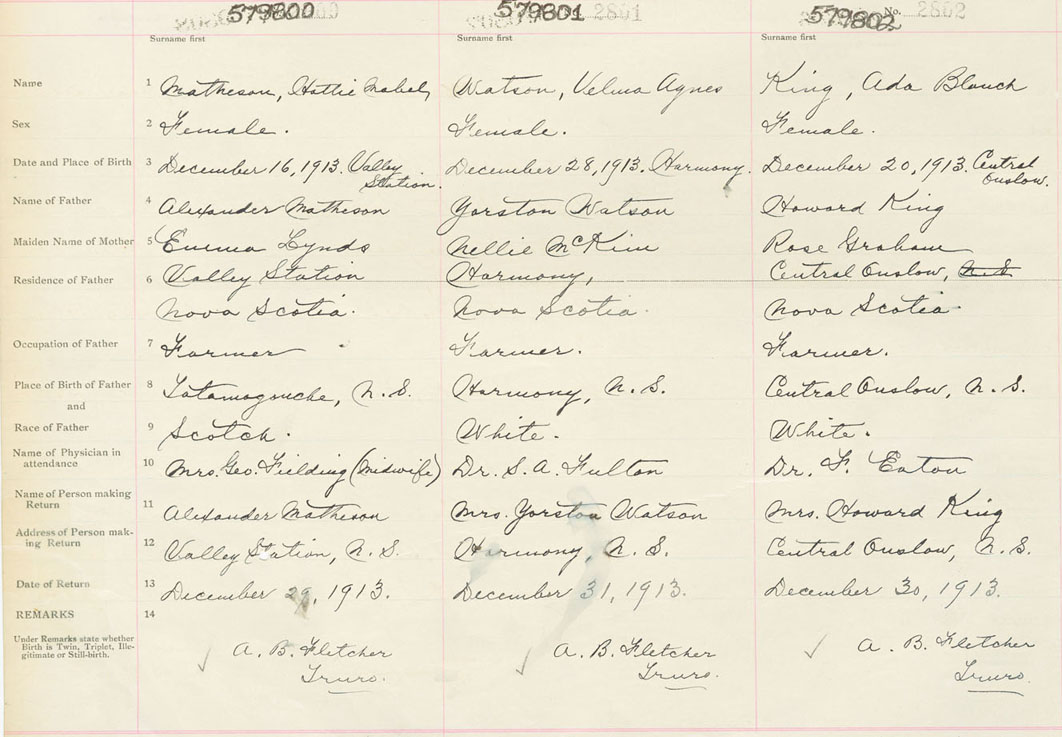 579800 579801 No. 2801 579802 No. 2802
Surname first Surname first Surname first
Name 1 Matheson, Hattie Mabel, Watson, Velma Agnes King, Ada Blanch
Sex 2 Female. Female. Female.
Date and Place of Birth 3 December 16, 1913. Valley Station. December 28, 1913. Harmony. December 20, 1913. Central Onslow.
Name of Father 4 Alexander Matheson Yorston Watson Howard King
Maiden Name of Mother 5 Emma Lynds Nellie McKim Rose Graham
Residence of Father 6 Valley Station Harmony, Central Onslow, N.S
Nova Scotia. Nova Scotia. Nova Scotia.
Occupation of Father 7 Farmer Farmer. Farmer.
Place of Birth of Father 8 Tatamagouche, N.S. Harmony, N.S. Central Onslow, N.S.
and
Race of Father 9 Scotch. White. White.
Name of Physician in attendance 10 Mrs. Geo. Fielding (Midwife) Dr. S. A. Fulton Dr. F. Eaton
Name of Person making Return 11 Alexander Matheson Mrs. Yorston Watson Mrs. Howard King
Address of Person making Return 12 Valley Station, N.S. Harmony, N.S. Central Onslow, N.S.
Date of Return 13 December 29, 1913. December 31, 1913. December 30, 1913.
REMARKS 14
Under Remarks state whether
Birth is Twin, Triplet, Ille-
gitimate or Still-birth.
A. B. Fletcher A. B. Fletcher A. B. Fletcher
Truro. Truro. Truro.